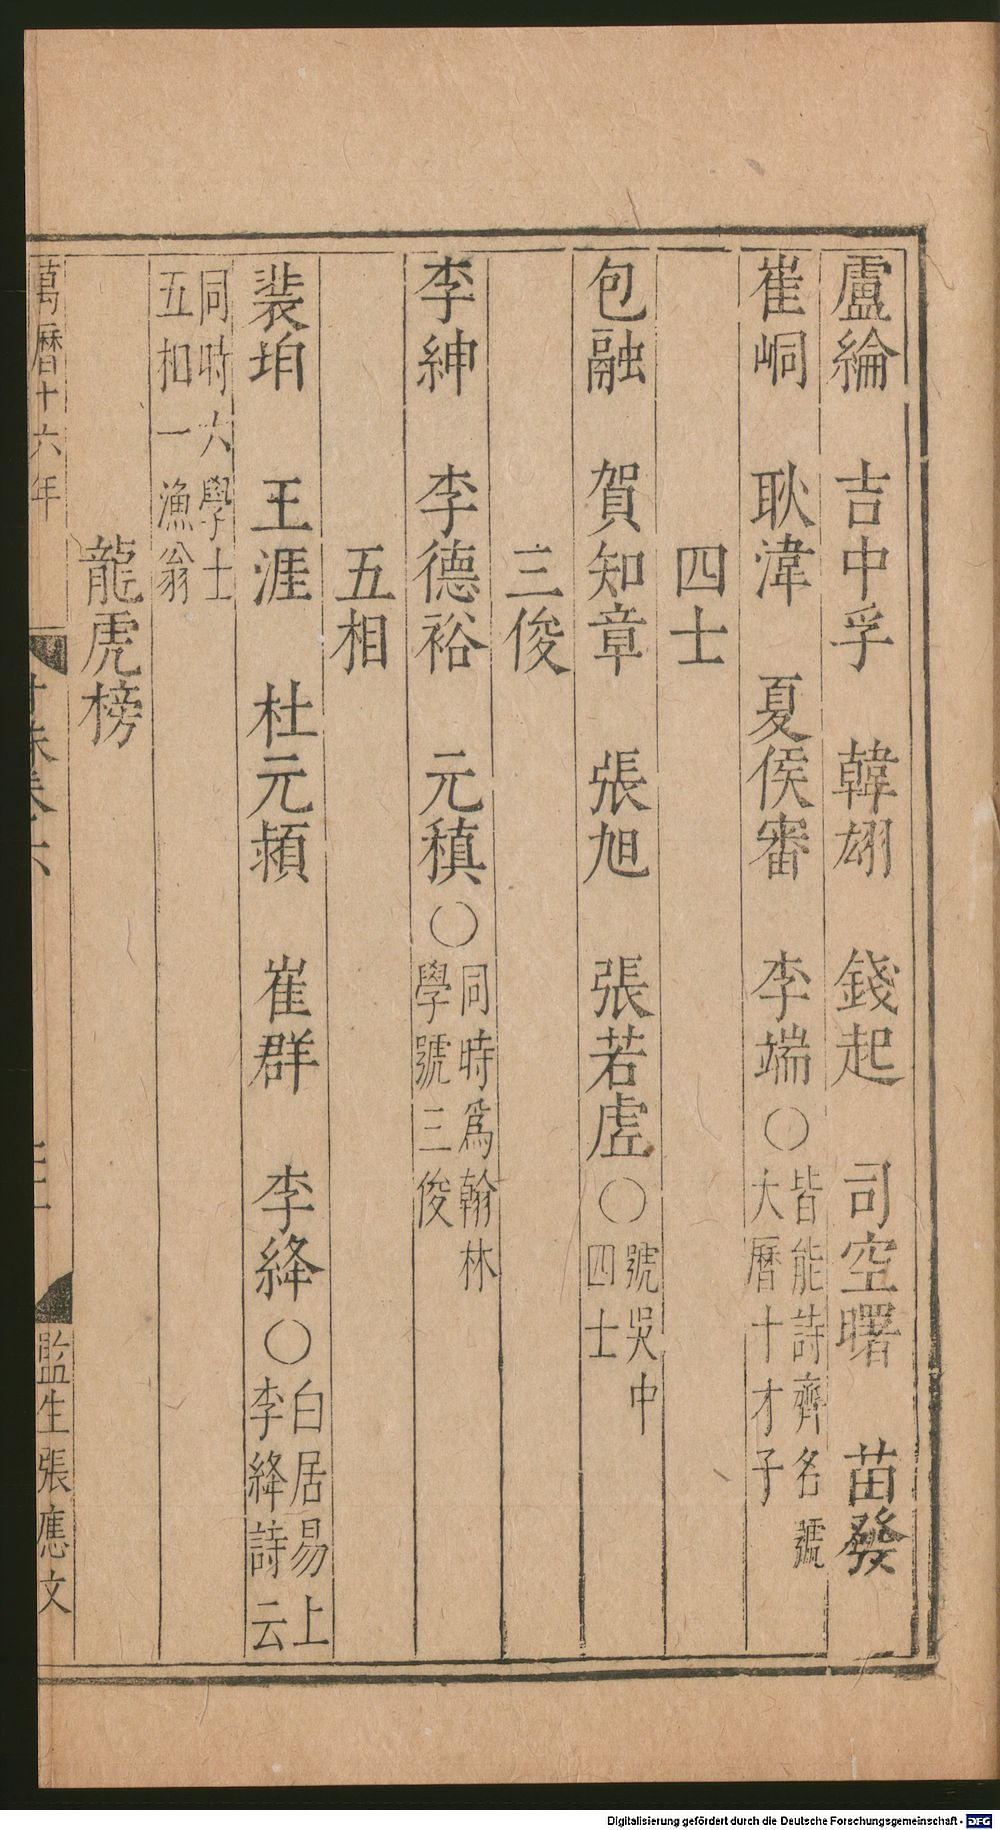 盧綸　吉中孚　韓翃　錢起　司空曙　苗發
崔峒　耿湋　夏侯審　李端○皆能詩齊名號
大曆十才子
四士
包融　賀知章　張旭　張若虛○號吳中
四士
三俊
李紳　李德裕　元稹○同時爲翰林
學號三俊
五相
裴垍　王涯　杜元頴　崔群　李絳○白居易上
李絳詩云
同時六學士
五相一漁翁
龍虎榜
萬曆十六年
監生張應文
Digitalisierung gefördert durch die Deutsche Forschungsgemeinschaft - DFG